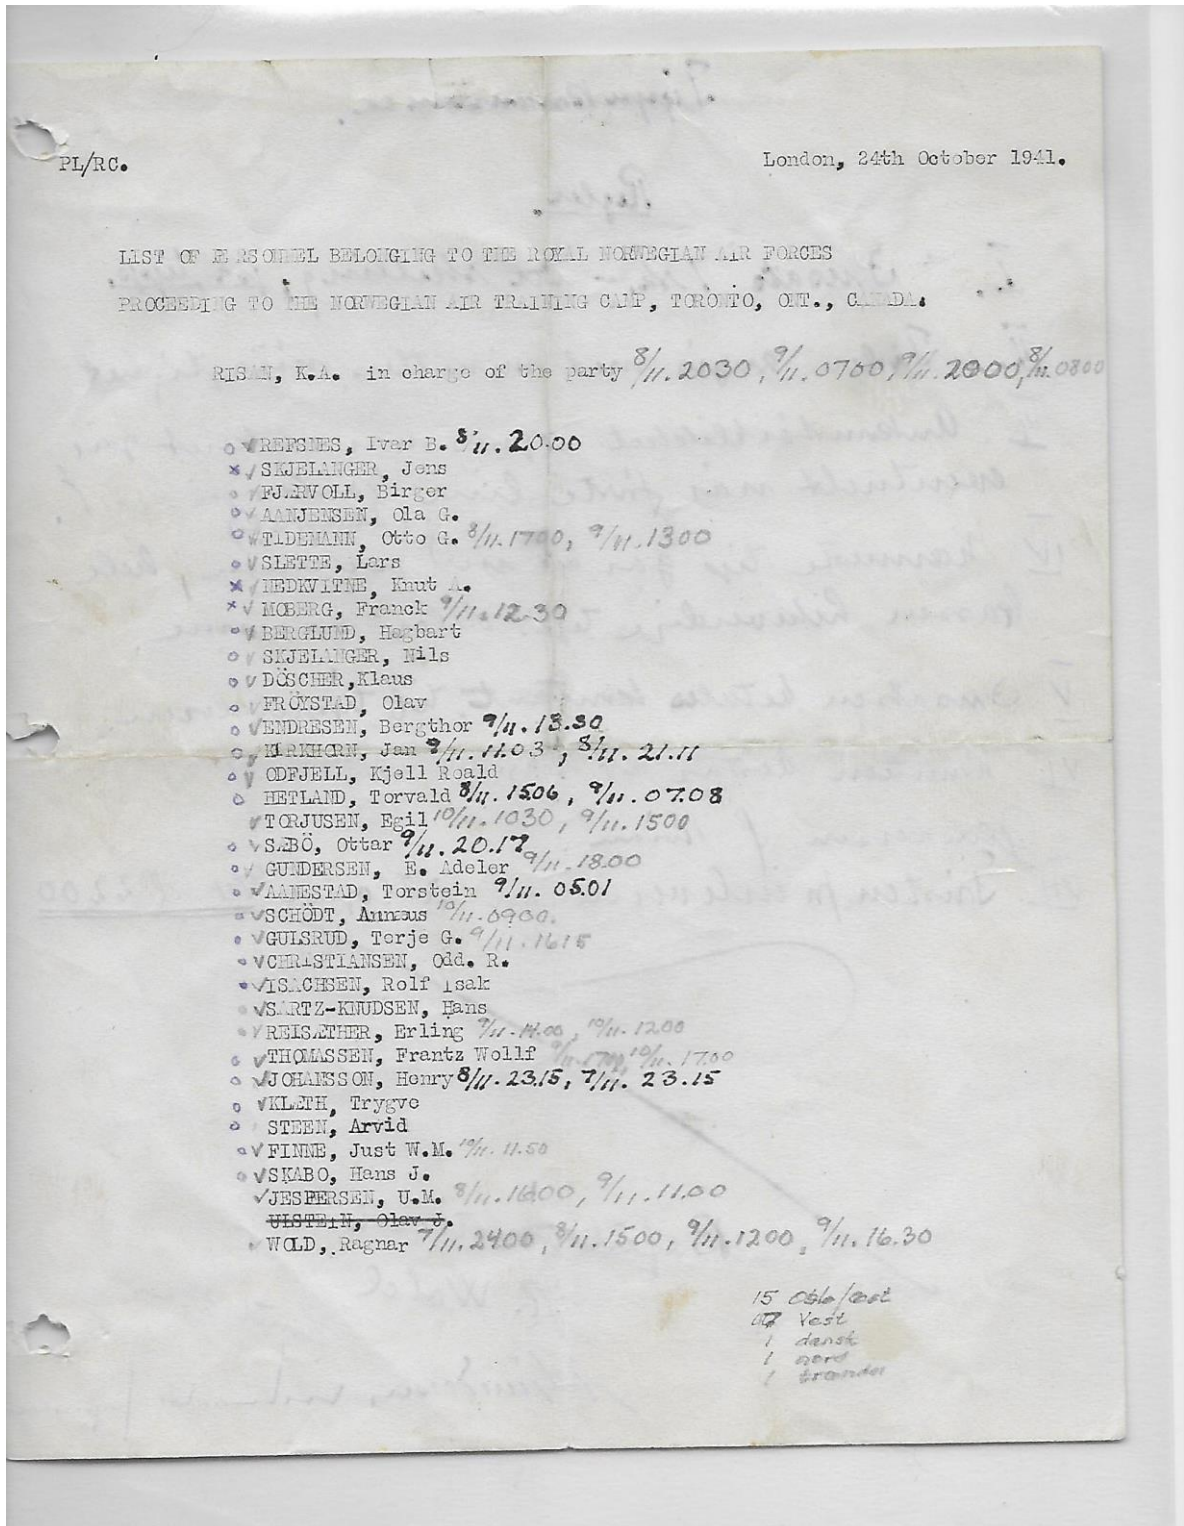 PL/RC.
London, 24th October 1941.
LIST OF PERSONNEL BELONGING TO THE ROYAL NORWEGIAN AIR FORCES
PROCEEDING TO THE NORWEGIAN AIR TRAINING CAMP, TORONTO, ONT., CANADA.
RISAN, K.A. in charge of the party 8/11. 2030, 9/11. 0700, 9/11. 2000, 8/11. 0800
o √ REFSNES, Ivar B. 8/11. 20.00
x √ SKJELANGER, Jens
o √ FJÆRVOLL, Birger
o √ AANJENSEN, Ola G.
o √ TIDEMANN, Otto G. 8/11. 1700, 9/11. 1300
o √ SLETTE, Lars
x √ NEDKVITNE, Knut A.
x √ MOBERG, Franck 9/11. 12.30
o √ BERGLUND, Hagbart
o √ SKJELANGER, Nils
o √ DÖSCHER,Klaus
o √ FRÖYSTAD, Olav
o √ ENDRESEN, Bergthor 9/11. 13.30
o √ KIRKHORN, Jan 9/11. 11.03, 8/11. 21.11
o √ ODFJELL, Kjell Roald
o HETLAND, Torvald 8/11. 15.06, 9/11. 07.08
√ TORJUSEN, Egil 10/11. 1030, 9/11. 1500
o √ SÆBÖ, Ottar 9/11. 20.17
o √ GUNDERSEN, E. Adeler 9/11. 18.00
o √ AANESTAD, Torstein 9/11. 05.01
o √ SCHÖDT, Annæus 10/11. 0900.
o √ GULSRUD, Terje G. 9/11. 1615
o √ CHRISTIANSEN, Odd. R.
o √ ISACHSEN, Rolf Isak
o √ SARTZ-KNUDSEN, Hans
o √ REISÆTHER, Erling 9/11. 14.00, 10/11. 1200
o √ THOMASSEN, Frantz Wollf 9/11. 1700, 10/11. 17.00
o √ JOHANSSON, Henry 8/11. 23.15, 7/11. 23.15
o √ KLÆTH, Trygve
o STEEN, Arvid
o √ FINNE, Just W.M. 10/11. 11.50
o √ SKABO, Hans J.
√ JESPERSEN, U.M. 8/11. 1600, 9/11. 11.00
ULSTEIN, Olav J.
√ WOLD, Ragnar 7/11. 2400, 8/11. 1500, 9/11. 1200, 9/11. 16.30
15 Oslo/øst
Vest
1 dansk
1 nord
1 trønder